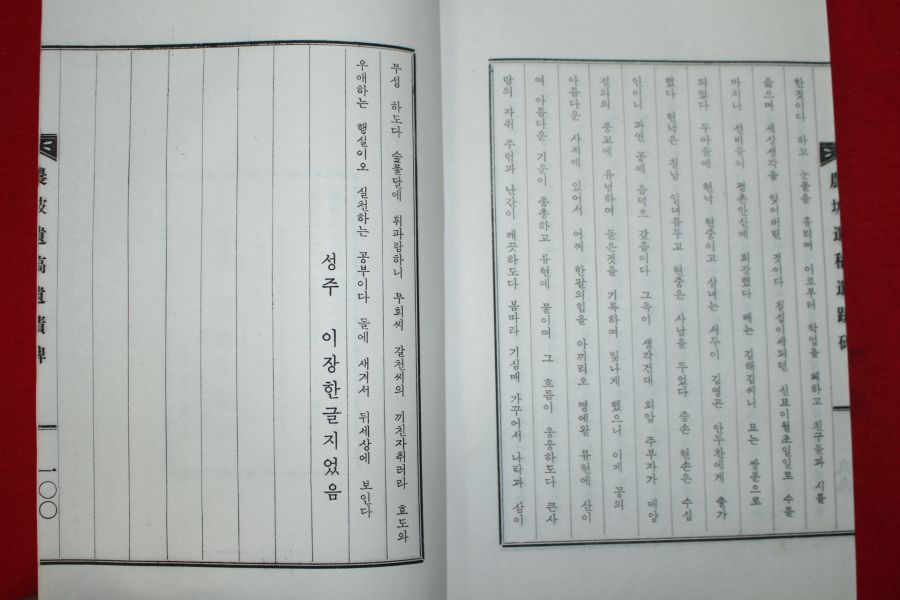 한것이다 하고 눈물을 흘리며 이로부터 학업을 폐하고 친구들과 시를
을으며 세상생각을 잊어버린 것이다 칠십이세되던 신묘이월초일일로 수를
마치니 선비들이 평촌안산에 회장했다 배는 김해김씨니 묘는 쌍분으로
되었다 두아들에 현낙 현중이고 삼녀는 서두이 김영곤 안두찬에게 출가
했다 현낙은 칠남 일녀를두고 현중은 사남을 두었다 증손 현손은 수십
인이니 과연 공에 음덕으 갚음이다 그윽이 생각건대 회암 주부자가 매양
절의의 풍교에 유념하여 들은것을 기록하여 빛나게 했으니 이제 공의
아름다운 사적에 있어서 어찌 한팔의힘을 아끼리오 명에왈 류현에 산이
여 아름다운 기운이 총총하고 류현에 물이여 그 흐름이 웅웅하도다 큰사
람의 자취 주럽과 난간이 깨끗하도다 봄따라 기심매 가꾸어서 나락과 삼이
農坡遺稿遺蹟碑
무성 하도다 술풀달에 휘파람하니 무회씨 갈천씨의 끼친자취러라 효도와
우애하는 행실이오 실천하는 공부이다 돌에 새겨서 뒤세상에 보인다
성주 이장한글지었음
農坡遺稿遺蹟碑
一〇〇